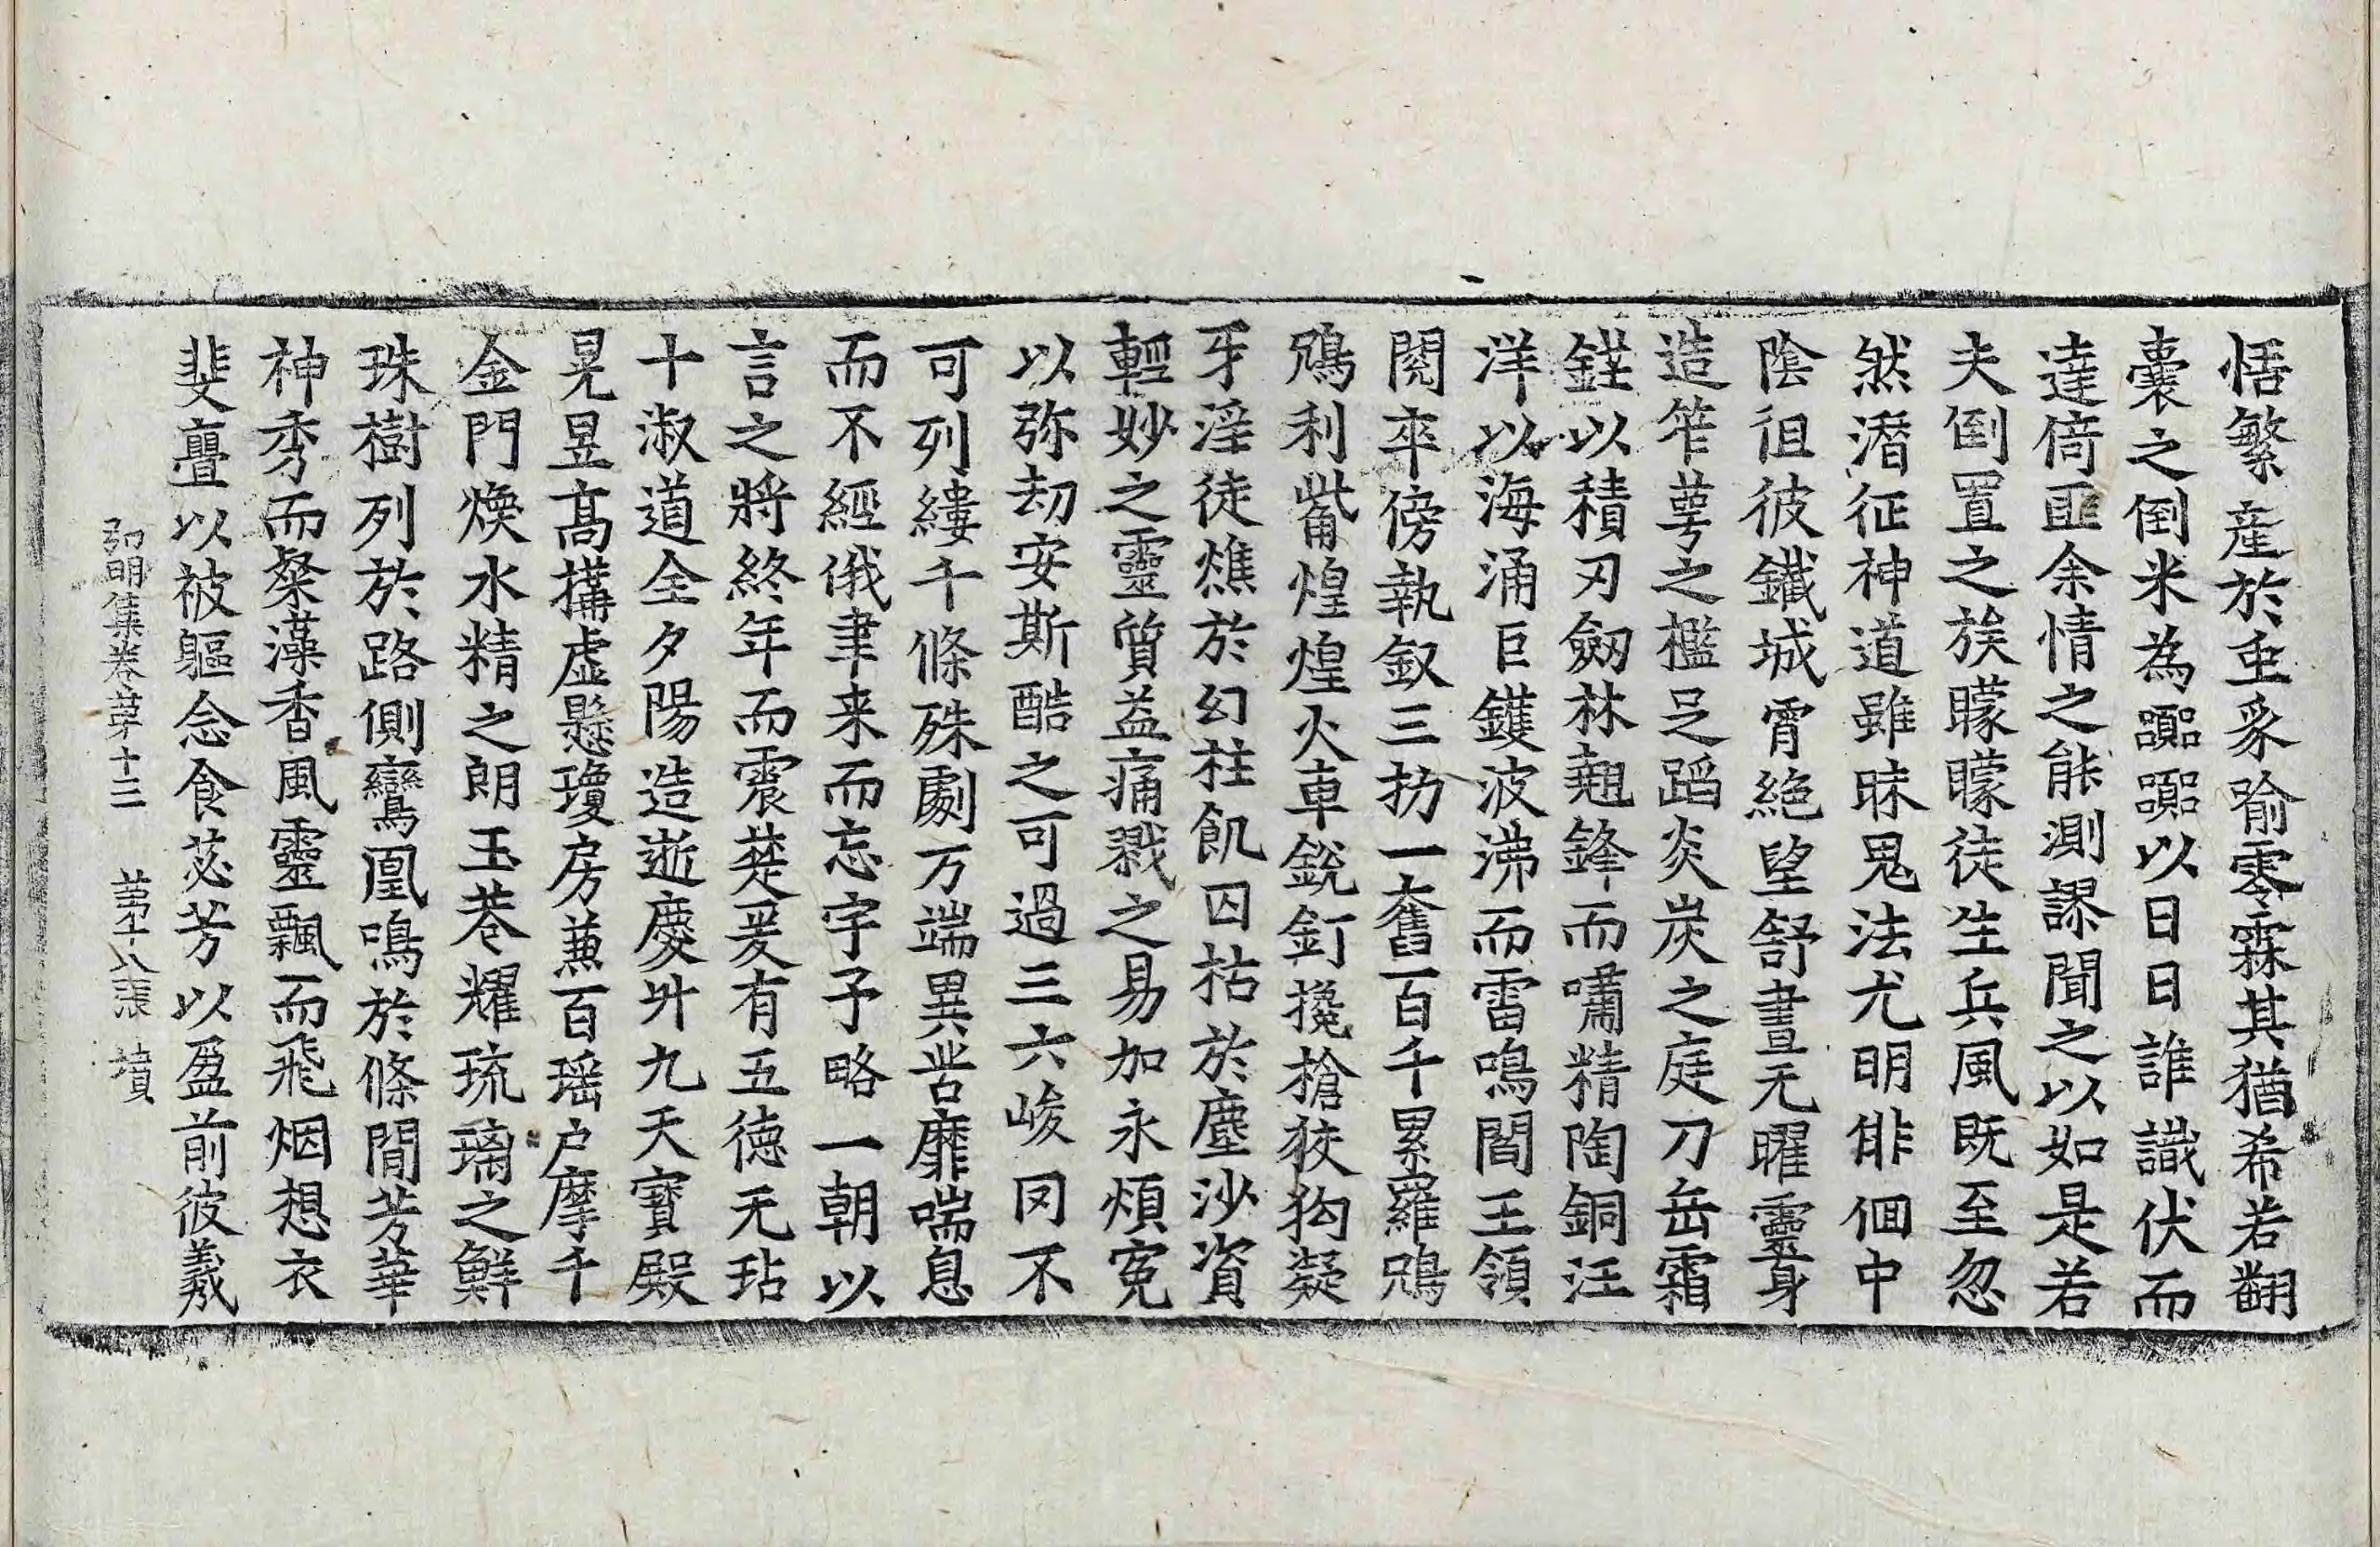 悟繁產於重豕喻零霖其猶希若翻
囊之倒米為謳謳以日日誰識伏而
達倚匪余情之能測謬聞之以如是若
夫倒置之族矇矇徒生兵風既至忽
然潛征神道雖昧鬼法尤明俳佪中
陰徂彼鐵城霄絕望舒晝无曜靈身
造笮萼之檻足蹈炎炭之庭刀岳霜
鋩以積刃劒林翹鋒而嘯精陶銅汪
洋以海涌巨鑊波沸而雷鳴閻王領
閱卒傍執釵三扐一奮百千累羅鵶
鵶利觜煌煌火車銳釘攙槍狡狗凝
牙淫徒燋於幻柱飢囚枯於塵沙資
輕妙之靈質益痛戮之易加永煩寃
以弥劫安斯酷之可過三六峻罔不
可列縷千條殊劇万端異苦靡喘息
而不經俄聿来而忘宇予略一朝以
言之將終年而震楚爰有五德无玷
十淑道全夕陽造逝慶升九天寶殿
晃昱髙搆虛懸瓊房兼百瑶户摩千
金門煥水精之朗玉巷耀琉璃之鮮
珠樹列於路側鸞凰鳴於條閒芳華
神秀而粲藻香風靈飄而飛烟想衣
斐亹以被軀念食苾芳以盈前彼羲
弘明集卷苐十三 苐十八張 墳